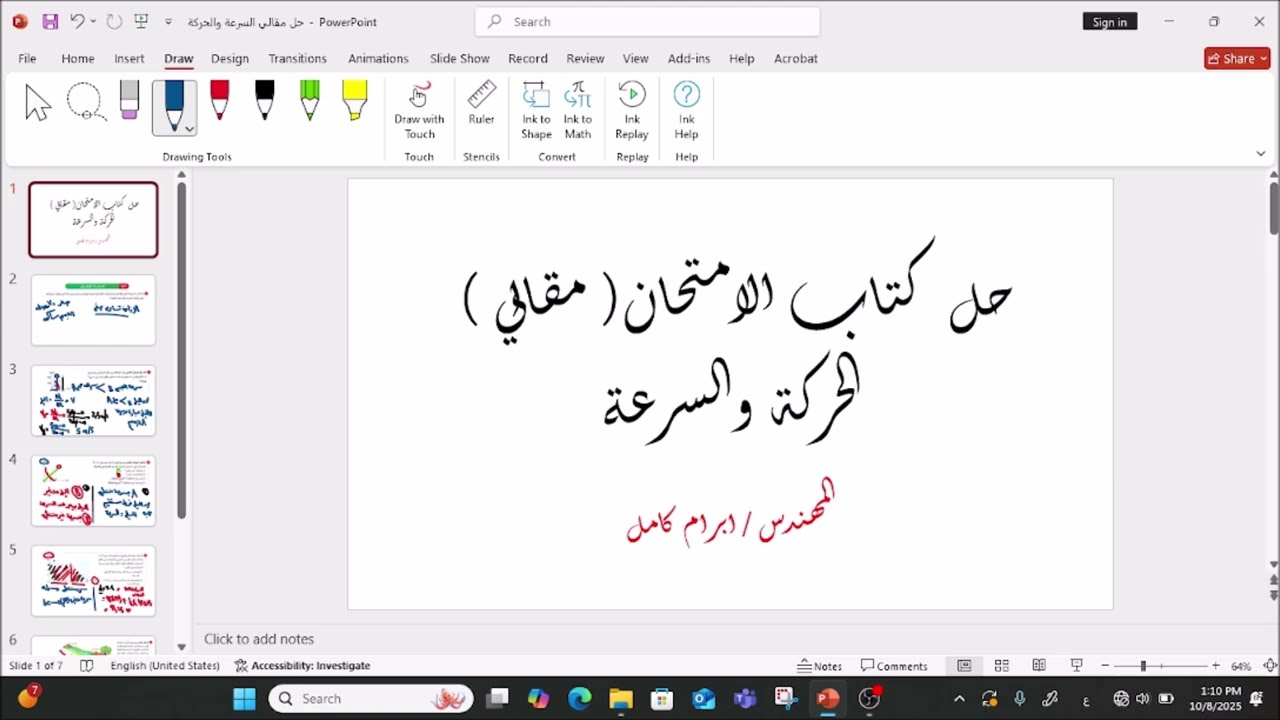 حل مقالي السرعة والحركة - PowerPoint
Search
Sign in
File Home Insert Draw Design Transitions Animations Slide Show Record Review View Add-ins Help Acrobat
Share
Draw with Touch
Ruler
Ink to Shape
Ink to Math
Ink Replay
Ink Help
Drawing Tools
Touch
Stencils
Convert
Replay
Help
1
2
3
4
5
6
حل كتاب الامتحان( مقالي )
الحركة والسرعة
المهندس / ابرام كامل
Click to add notes
Slide 1 of 7
English (United States)
Accessibility: Investigate
Notes
Comments
64%
7
Search
ع
1:10 PM
10/8/2025